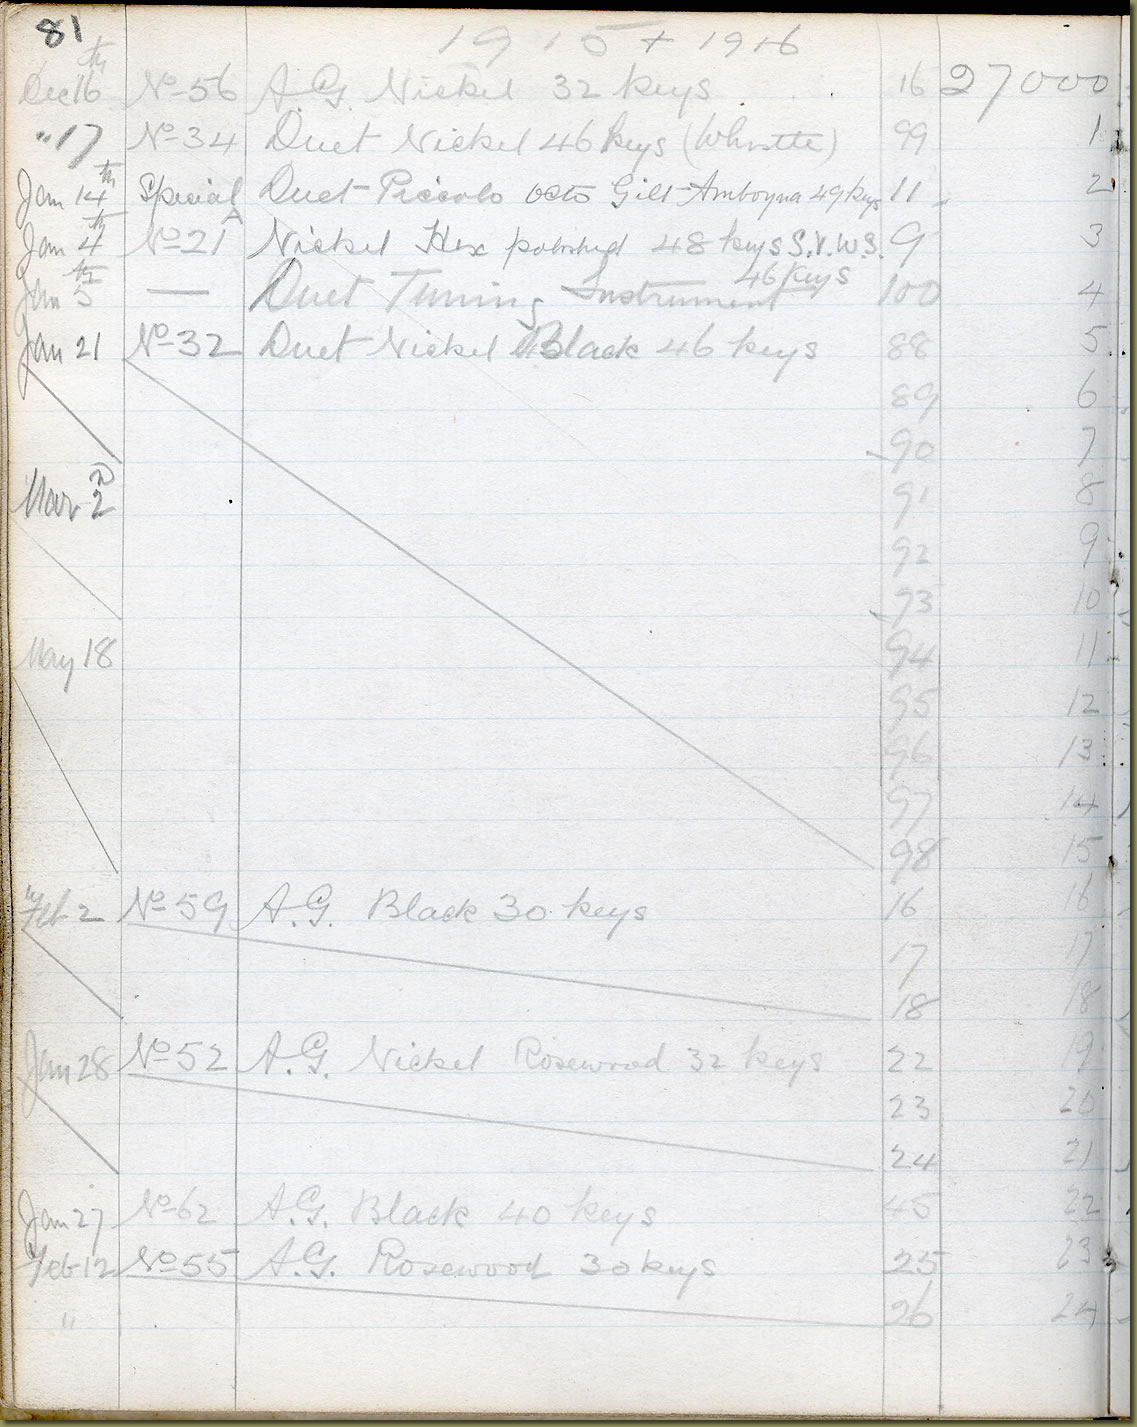 81
1915 + 1916
Dec 16th No 56 A.G. Nickel 32 keys 16 27000
" 17 No 34 Duet Nickel 46 keys (Whistle) 99 1
Jan 14th Special Duet Piccolo Octo Gilt Amboyna 49 keys 11 2
Jan 4th No 21A Nickel Hex polished 48 keys S.V.W.S. 9 3
Jan 5th — Duet Tuning Instrument 46 keys 100 4
Jan 21 No 32 Duet Nickel Black 46 keys 88 5
89 6
90 7
Mar 2 91 8
92 9
93 10
May 18 94 11
95 12
96 13
97 14
98 15
Feb 2 No 59 A.G. Black 30 keys 16 16
17 17
18 18
Jan 28 No 52 A.G. Nickel Rosewood 32 keys 22 19
23 20
24 21
Jan 27 No 62 A.G. Black 40 keys 45 22
Feb 12 No 55 A.G. Rosewood 30 keys 25 23
" 26 24